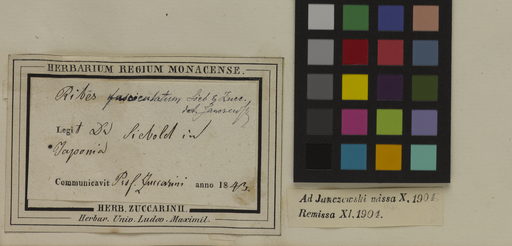 HERBARIUM REGIUM MONACENSE.
Ribes fasciculatum Sieb & Zucc.
det. Janczewski
Legit Dr Siebold in
Japonia
Communicavit Prof. Zuccarini anno 1843.
HERB. ZUCCARINII
Herbar. Univ. Ludov. Maximil.
Ad Janczewski missa X. 1904.
Remissa XI. 1904.